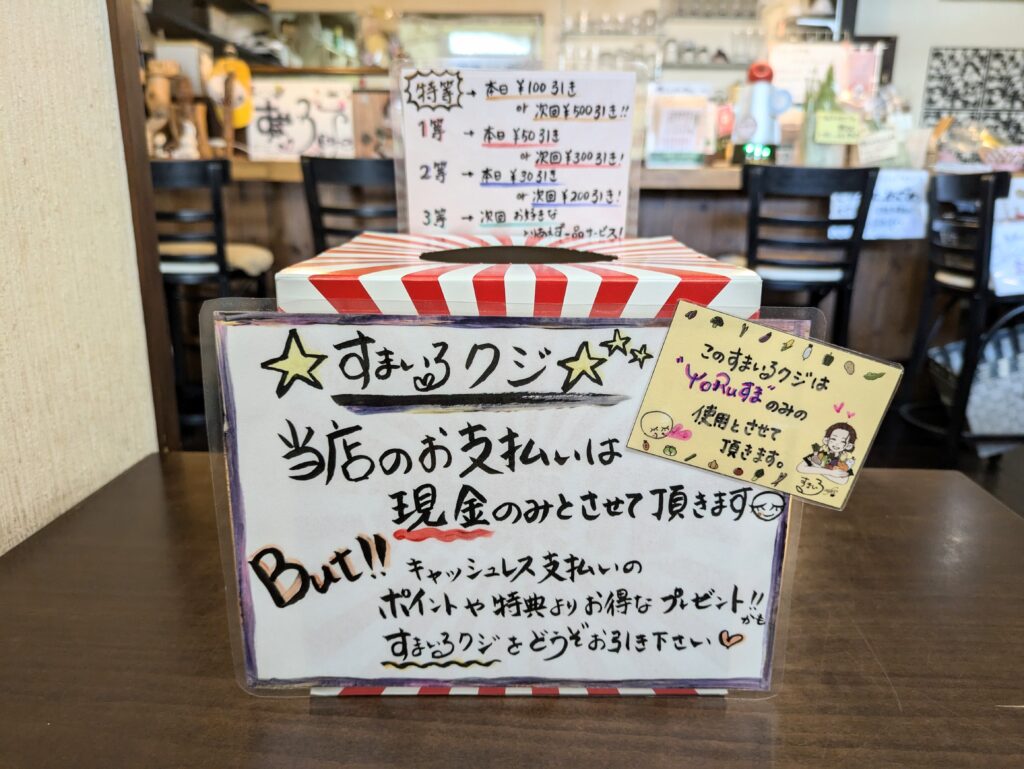 特等 → 本日 ¥100引き
or 次回¥500引き!!
1等 → 本日¥50引き
or 次回¥300引き!
2等 → 本日¥30引き
or 次回¥200引き!
3等 → 次回 お好きな
とりあえず一品サービス!
すまいるクジ
当店のお支払いは
現金のみとさせて頂きます
But!! キャッシュレス支払いの
ポイントや特典よりお得なプレゼント!!
かも
すまいるクジをどうぞお引き下さい
このすまいるクジは
"YoRuすま"のみの
使用とさせて
頂きます。
すまいる